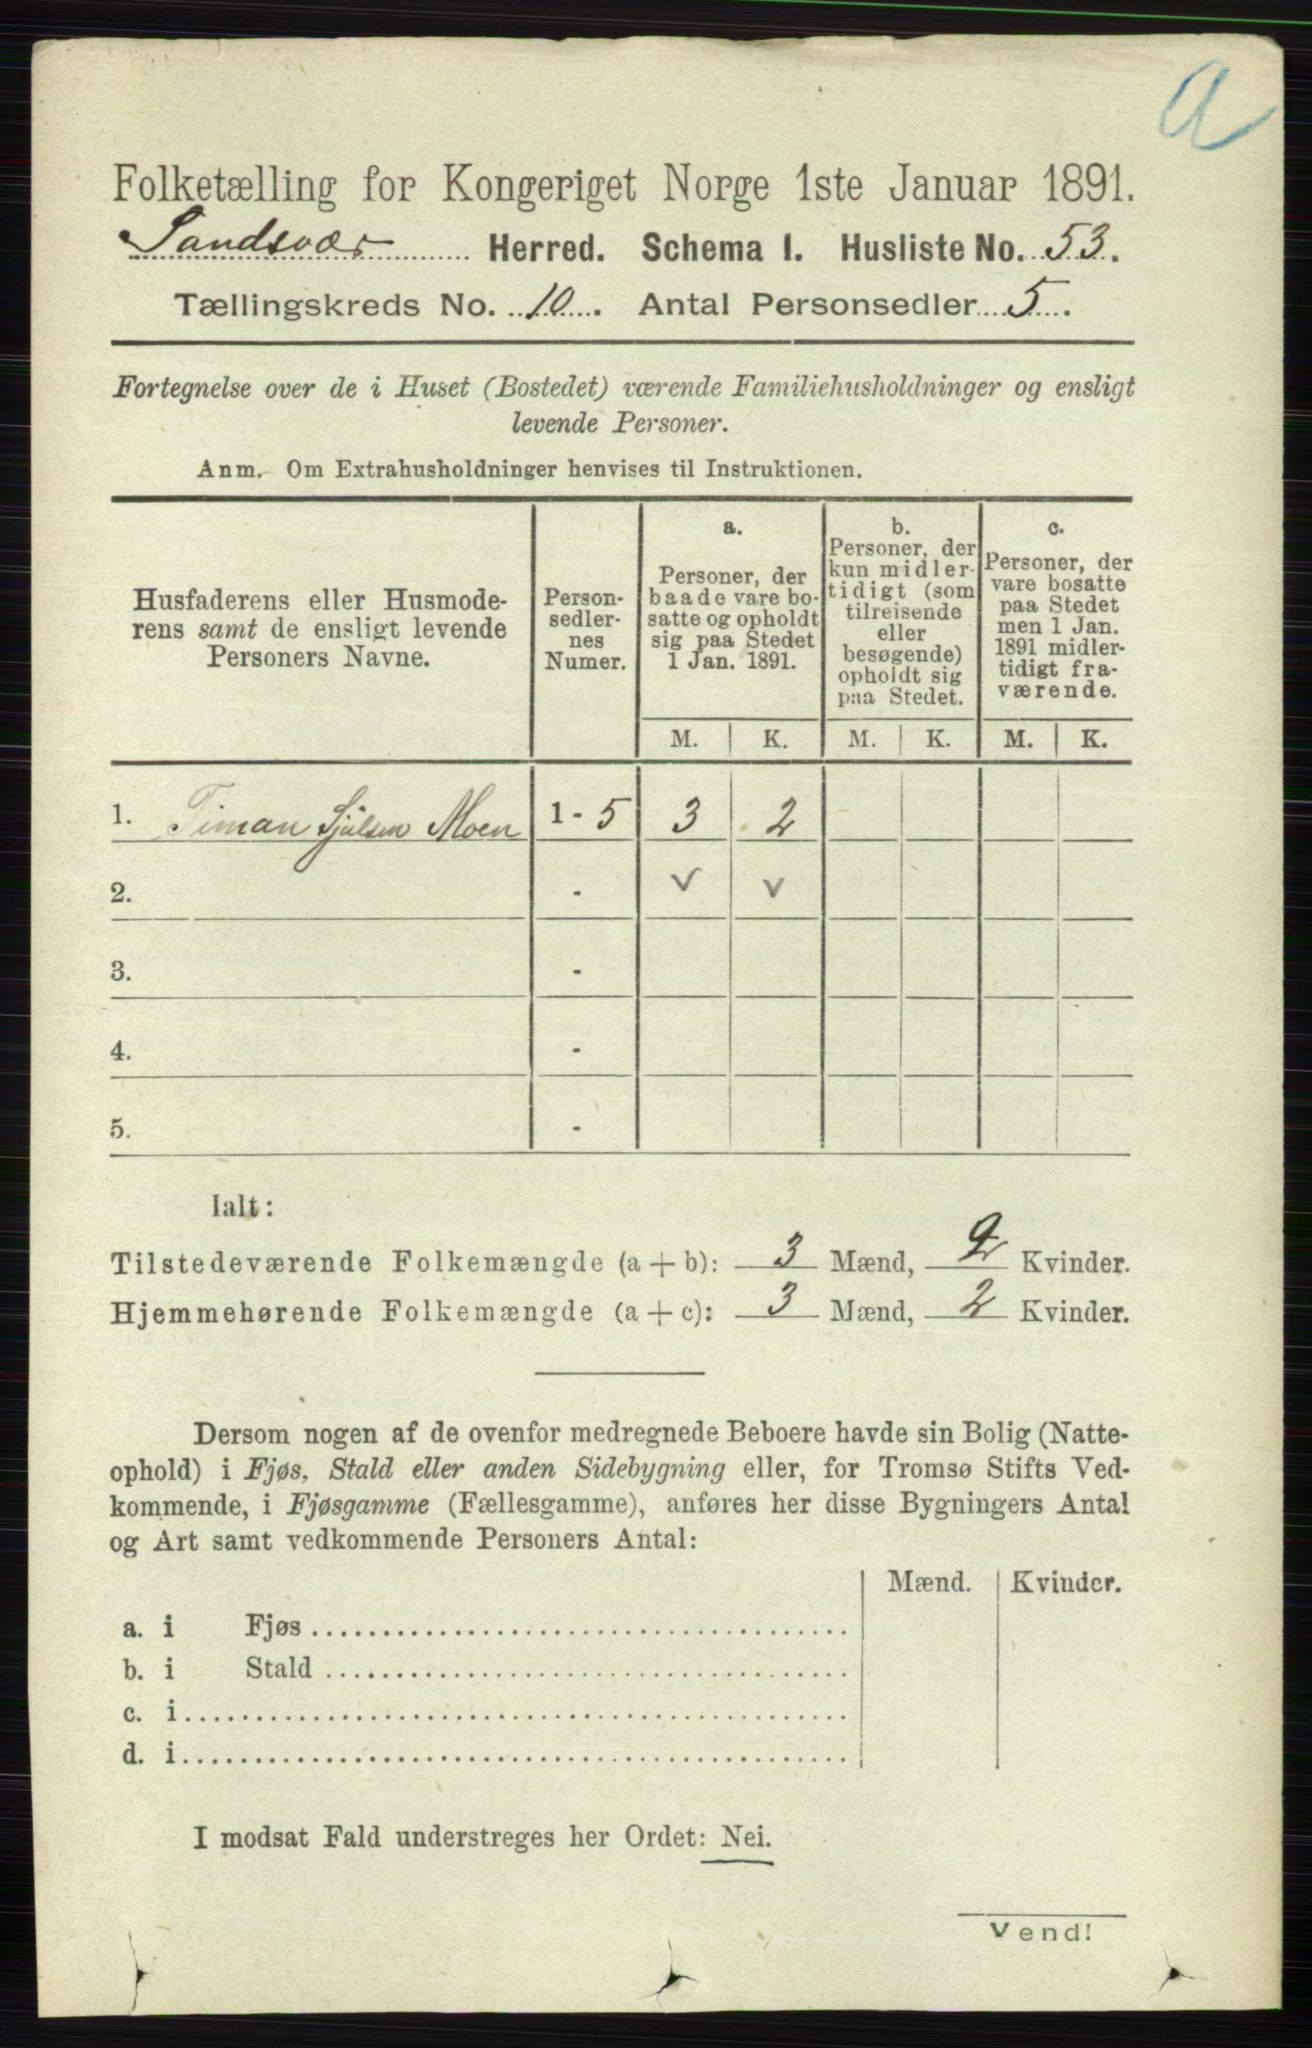 a
Folketælling for Kongeriget Norge 1ste Januar 1891.
Sandsvær Herred. Schema I. Husliste No. 53.
Tællingskreds No. 10. Antal Personsedler 5.
Fortegnelse over de i Huset (Bostedet) værende Familiehusholdninger og ensligt
levende Personer.
Anm. Om Extrahusholdninger henvises til Instruktionen.
Husfaderens eller Husmode-
rens samt de ensligt levende
Personers Navne.
Person-
sedler-
nes
Numer.
a.
Personer, der
baade vare bo-
satte og opholdt
sig paa Stedet
1 Jan. 1891.
b.
Personer, der
kun midler-
tidigt (som
tilreisende
eller
besøgende)
opholdt sig
paa Stedet.
c.
Personer, der
vare bosatte
paa Stedet
men 1 Jan.
1891 midler-
tidigt fra-
værende.
M. K. M. K. M. K.
1. Timan Sjulsen Moen 1 - 5 3 2
2. - v v
3. -
4. -
5. -
Ialt:
Tilstedeværende Folkemængde (a + b): 3 Mænd, 2 Kvinder.
Hjemmehørende Folkemængde (a + c): 3 Mænd, 2 Kvinder.
Dersom nogen af de ovenfor medregnede Beboere havde sin Bolig (Natte-
ophold) i Fjøs, Stald eller anden Sidebygning eller, for Tromsø Stifts Ved-
kommende, i Fjøsgamme (Fællesgamme), anføres her disse Bygningers Antal
og Art samt vedkommende Personers Antal:
Mænd. Kvinder.
a. i Fjøs
b. i Stald
c. i
d. i
I modsat Fald understreges her Ordet: Nei.
Vend!